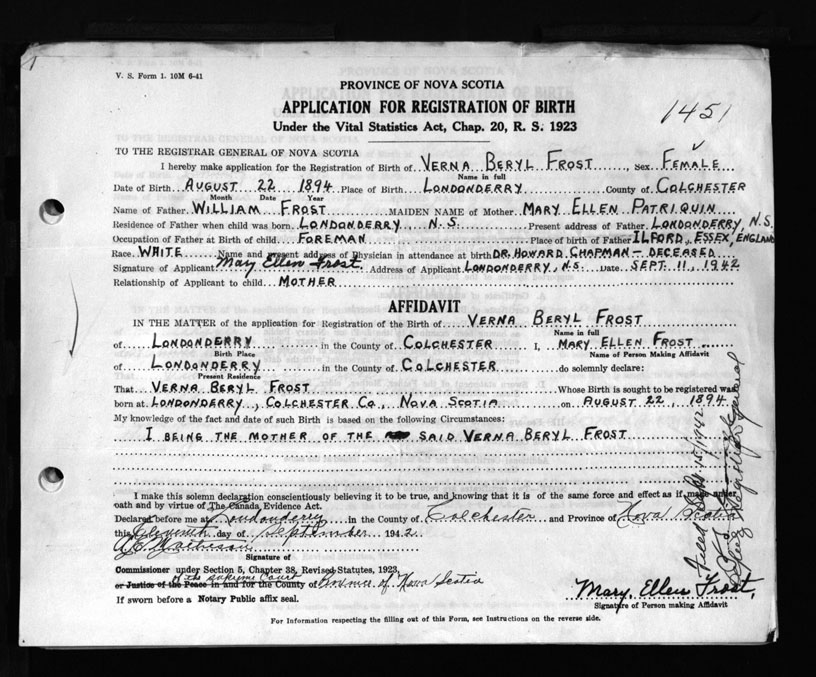 V. S. Form 1. 10M 6-41
PROVINCE OF NOVA SCOTIA
APPLICATION FOR REGISTRATION OF BIRTH
Under the Vital Statistics Act, Chap. 20, R. S. 1923
1451
TO THE REGISTRAR GENERAL OF NOVA SCOTIA
I hereby make application for the Registration of Birth of VERNA BERYL FROST, Sex FEMALE
Name in full
Date of Birth AUGUST 22 1894 Place of Birth LONDONDERRY County of COLCHESTER
Month Date Year
Name of Father WILLIAM FROST MAIDEN NAME of Mother MARY ELLEN PATRIQUIN
Residence of Father when child was born LONDONDERRY, N.S. Present address of Father LONDONDERRY, N.S.
Occupation of Father at Birth of child FOREMAN Place of birth of Father ILFORD, ESSEX, ENGLAND
Race WHITE Name and present address of Physician in attendance at birth DR. HOWARD CHAPMAN - DECEASED
Signature of Applicant Mary Ellen Frost. Address of Applicant LONDONDERRY, N.S. Date SEPT. 11, 1942
Relationship of Applicant to child MOTHER
AFFIDAVIT
IN THE MATTER of the application for Registration of the Birth of VERNA BERYL FROST
Name in full
of LONDONDERRY in the County of COLCHESTER I, MARY ELLEN FROST
Birth Place Name of Person Making Affidavit
of LONDONDERRY in the County of COLCHESTER do solemnly declare:
Present Residence
That VERNA BERYL FROST Whose Birth is sought to be registered was
born at LONDONDERRY, COLCHESTER CO., NOVA SCOTIA on AUGUST 22, 1894
My knowledge of the fact and date of such Birth is based on the following Circumstances:
I BEING THE MOTHER OF THE SAID VERNA BERYL FROST
I make this solemn declaration conscientiously believing it to be true, and knowing that it is of the same force and effect as if made under
oath and by virtue of The Canada Evidence Act.
Declared before me at Londonderry in the County of Colchester and Province of Nova Scotia
this Eleventh day of September 1942.
Signature of
Commissioner under Section 5, Chapter 38, Revised Statutes, 1923,
of the Supreme Court
or Justice of the Peace in and for the County of Province of Nova Scotia
If sworn before a Notary Public affix seal.
Mary, Ellen Frost,
Signature of Person making Affidavit
For Information respecting the filling out of this Form, see Instructions on the reverse side.
Filed Sept. 15, 1942
Registrar General